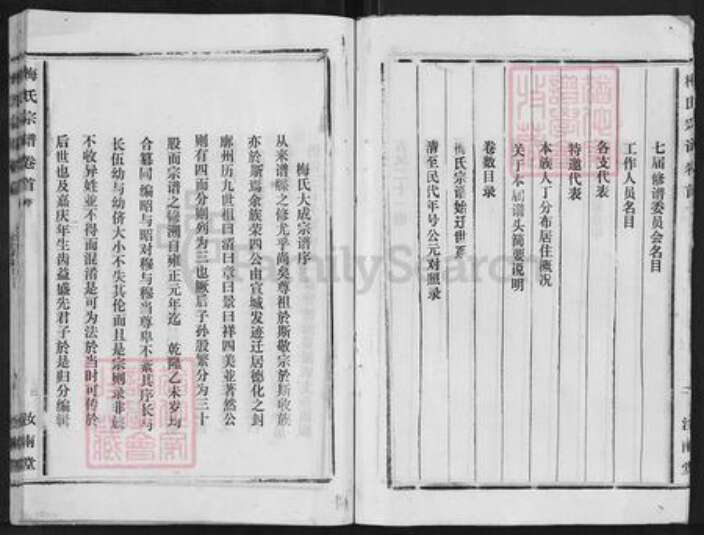 梅氏宗谱卷首
七届修谱委员会名目
工作人员名目
各支代表
特邀代表
本族人丁分布居住概况
关于本届谱头简要说明
卷数目录
梅氏宗谱始迁世系
清至民代年号公元对照录
汝南堂
梅氏大成宗谱序
从来谱牒之修尤乎尚矣尊祖於斯敬宗於斯收族
亦於斯焉余族荣四公由宣城发迹迁居德化之封
廓州历九世祖曰清曰章曰景曰祥四美並著然公
则有四而分则列为三也厥后子孙殷繁分为三十
股而宗谱之修溯自雍正元年迄 乾隆乙未岁均
合纂同编昭与昭对穆与穆当尊卑不紊其序长与
长伍幼与幼侪大小不失其伦而且是宗则录非族
不收异姓並不得而混淆是可为法於当时可传於
后世也及嘉庆年生齿益盛先君子於是归分编辑
梅氏宗谱卷首
汝南堂
FamilySearch